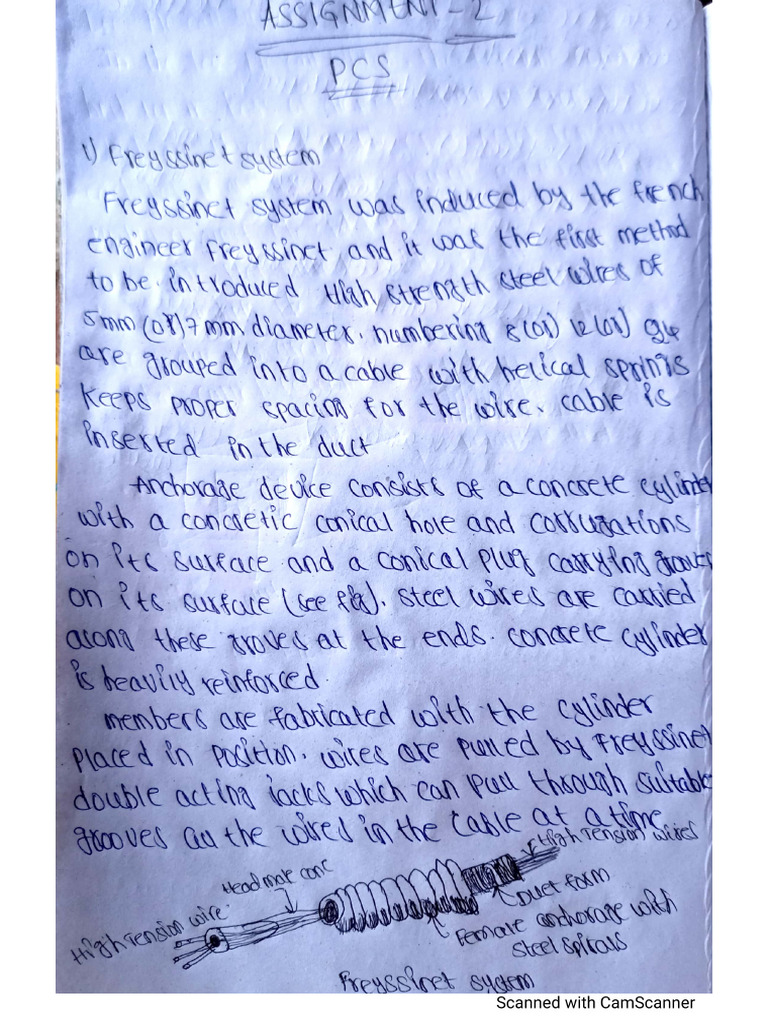 ASSIGNMENT - 2
PCS
1) Freyssinet system
Freyssinet system was induced by the french
engineer Freyssinet and it was the first method
to be introduced High strength steel wires of
5mm (or) 7mm diameter, numbering 8 (or) 12 (or) 24
are grouped into a cable with helical springs
keeps proper spacing for the wire. cable is
inserted in the duct
Anchorage device consists of a concrete cylinder
with a concretic conical hole and corrugations
on its surface and a conical plug carrying grooves
on its surface (see fig). steel wires are carried
along these groves at the ends. concrete cylinder
is heavily reinforced.
members are fabricated with the cylinder
placed in position. wires are pulled by Freyssinet
double acting jacks which can pull through suitable
grooves all the wired in the cable at a time
High Tension wires
Head male conc
Duct form
High Tension wire
Female anchorage with
steel spirals
Freyssinet system
Scanned with CamScanner